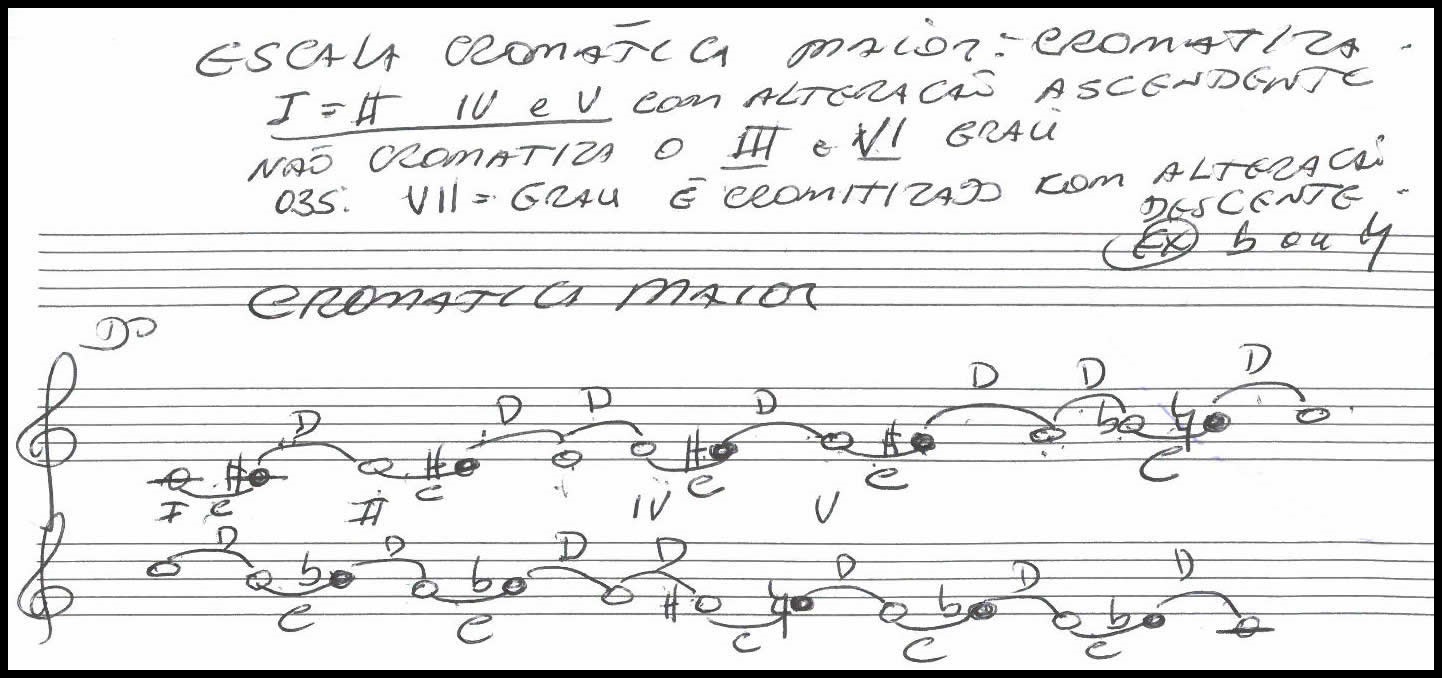 ESCALA CROMÁTICA MAIOR:- CROMATIZA.
I = II IV e V COM ALTERACAÕ ASCENDENTE
NAÕ CROMATIZA O III e VI GRAU
OBS: VII = GRAU É CROMITIZADO COM ALTERACAÕ
DESCENTE.
EX b ou ♮
CROMATICA MAIOR
DO
D D D D D D D
# # # # b ♮
C C C C C
I II IV V
D D D D D D D
b b # ♮ b b
C C C C C